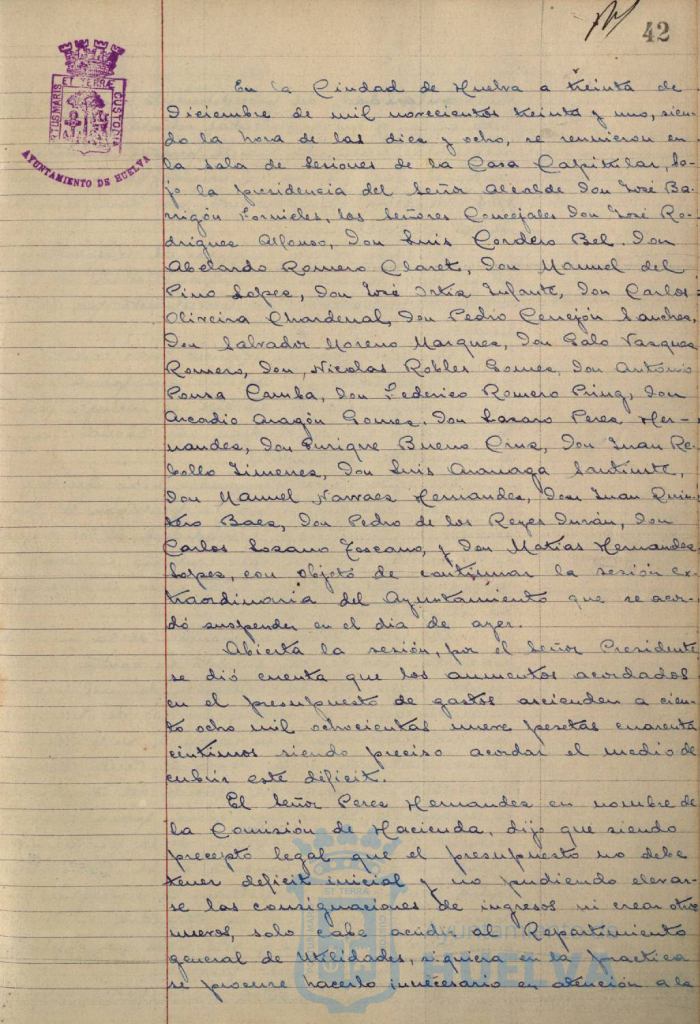 42
PORTUS MARIS ET TERRAE CUSTODIA
AYUNTAMIENTO DE HUELVA
En la Ciudad de Huelva a treinta de
Diciembre de mil novecientos treinta y uno, sien-
do la hora de las diez y ocho, se reunieron en
la sala de sesiones de la Casa Capitular, ba-
jo la presidencia del Señor Alcalde Don José Ba-
rrigón Fornieles, los Señores Concejales Don José Ro-
driguez Alfonso, Don Luis Cordero Bel. Don
Abelardo Romero Claret, Don Manuel del
Pino Lopez, Don José Ortiz Infante, Don Carlos
Oliveira Chardenal, Don Pedro Cerrejón Sanchez,
Don Salvador Moreno Marquez, Don Galo Vazquez
Romero, Don Nicolas Robles Gomez, Don Antonio
Ponza Camba, Don Federico Romero Pring, Don
Arcadio Aragón Gomez, Don Lazaro Perez Her-
nandez, Don Enrique Bueno Cruz, Don Juan Re-
bollo Jimenez, Don Luis Aranaga Santinte,
Don Manuel Narvaez Hernandez, Don Juan Quin-
tero Baez, Don Pedro de los Reyes Durán, Don
Carlos Lozano Toscano, y Don Matías Hernandez
Lopez, con objeto de continuar la sesión ex-
traordinaria del Ayuntamiento que se acor-
dó suspender en el dia de ayer.
Abierta la sesión, por el Señor Presidente
se dió cuenta que los aumentos acordados
en el presupuesto de gastos ascienden a cien-
to ocho mil ochocientas nueve pesetas cuarenta
céntimos siendo preciso acordar el medio de
cubrir este déficit.
El Señor Perez Hernandez en nombre de
la Comisión de Hacienda, dijo que siendo
precepto legal que el presupuesto no debe
tener deficit inicial y no pudiendo elevar-
se las consignaciones de ingresos ni crear otros
nuevos, solo cabe acudir al Repartimiento
general de Utilidades, siquiera en la practica
se procure hacerlo innecesario en atención a la
HUELVA